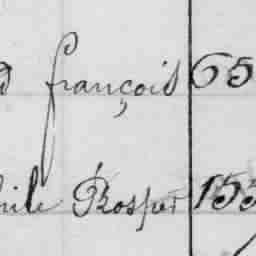 françois 65
Prosper 153